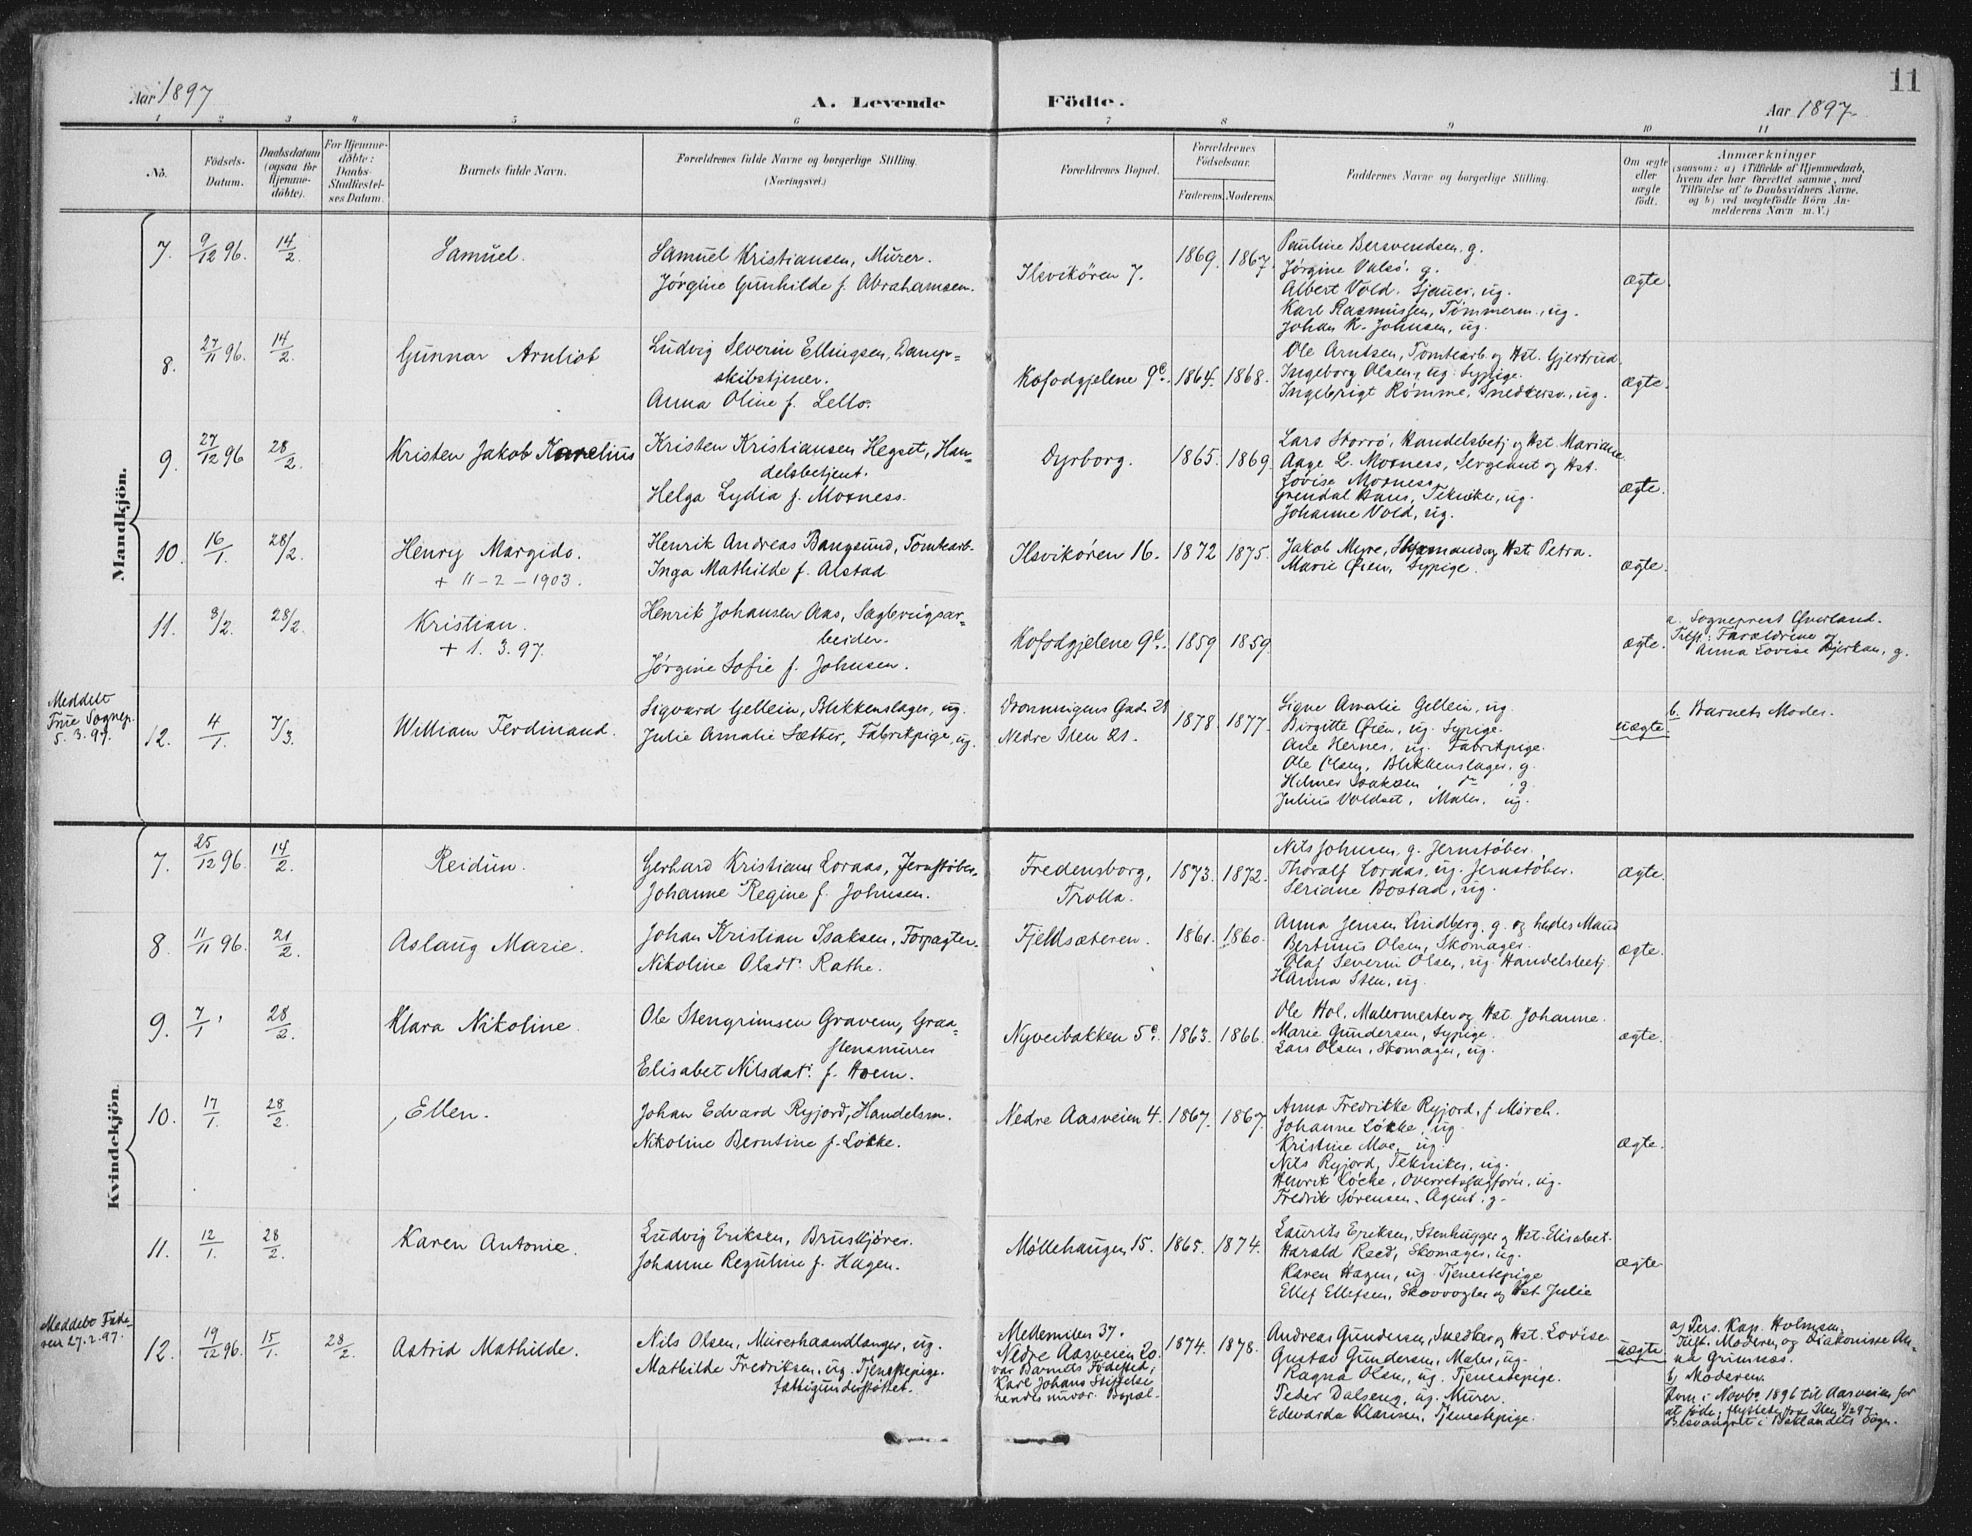 11
Aar 1897
A. Levende
Födte.
Aar 1897
1 2 3 4 5 6 7 8 9 10 11
No.
Födsels-
Datum.
Daabsdatum
(ogsaa for
Hjemme-
döbte).
For Hjemme-
döbte:
Daabs-
Stadfæstel-
ses Datum.
Barnets fulde Navn.
Forældrenes fulde Navne og borgerlige Stilling.
(Næringsvei.)
Forældrenes Bopæl.
Forældrenes
Födselsaar.
Faderens. Moderens.
Faddernes Navne og borgerlige Stilling.
Om ægte
eller
uægte
født.
Anmærkninger
(saasom: a) i Tilfælde af Hjemmedaab,
hvem der har forrettet samme, med
Tilföielse af to Daabsvidners Navne.
og b) ved uægtefödte Börn An-
melderens Navn m. V.)
Mandkjön.
7. 9/12 96. 14/2 Samuel.
Samuel Kristiansen, Murer.
Jørgine Gunhilde f. Abrahamsen.
Ilsvikören 7. 1869. 1867.
Pauline Bersvendsen, g.
Jørgine Valsö. g.
Albert Vold. Sjauer, ug.
Karl Rasmussen, Tømmerm., ug.
Johan K. Johnsen, ug.
ægte
8. 27/11 96. 14/2 Gunnar Arnliot
Ludvig Severin Ellingsen, Damp-
skibstjener.
Anna Oline f. Lello.
Kofodgjelene 9c. 1864. 1868.
Ole Arntsen, Tomtearb. og Hst. Gjertrud.
Ingeborg Olsen, ug. Sypige.
Ingebrigt Römme, Snedkersv., ug.
ægte.
9. 27/12 96 28/2 Kristen Jakob Kornelius
Kristen Kristiansen Hegset, Han-
delsbetjent.
Helga Lydia f. Moxness.
Dyrborg. 1865. 1869.
Lars Storrö, Handelsbetj og Hst. Mariane
Aage L. Moxness, Sergeant og Hst.
Lovise Moxness.
Grendal Hans, Tekniker, ug.
Johanne Vold, ug.
ægte.
10. 16/1. 28/2. Henry Margido.
+ 11-2-1903.
Henrik Andreas Bangsund, Tomtearb.
Inga Mathilde f. Alstad
Ilsvikören 16. 1872 1875.
Jakob Myre, Styrmand og Hst. Petra.
Marie Øien, Sypige.
ægte.
11. 3/2. 28/2. Kristian.
+ 1. 3. 97.
Henrik Johansen Aas, Sagbrugsar-
beider.
Jørgine Sofie f. Johnsen.
Kofodgjelene 9c. 1859 1859.
ægte.
a. Sogneprest Qverland.
Tilst: Forældrene
Anna Lovise Bjerkan, g.
Meddelt
Frue Sognep.
5. 3. 97.
12. 4/1. 7/3. William Ferdinand.
Sigvard Gellein, Blikkenslager, ug.
Julie Amalie Sæther, Fabrikpige, ug.
Dronningens Gad. 28
Nedre Ilen 21.
1878. 1877.
Signe Amalie Gellein, ug.
Birgitte Øien, ug. Sypige.
Ane Hernes, ug. Fabrikpige.
Ole Olsen, Blikkenslager, g.
Hilmer Isaksen, do., g
Julius Voldset, Maler, ug.
uægte.
b. Barnets Moder.
Kvindekjön
7. 25/12 96. 14/2. Reidun.
Gerhard Kristians Loraas, Jernstøber.
Johanne Regine f. Johnsen.
Fredensborg,
Trolla.
1873. 1872.
Nils Johnsen, g. Jernstøber.
Thoralf Loraas, ug. Jernstøber.
Seriane Bostad, ug.
ægte.
8. 11/11 96. 21/2. Aslaug Marie.
Johan Kristian Isaksen, Forpagter.
Nikoline Olsdtr. Rathe.
Fjeldsæteren. 1861. 1860.
Anna Jensen Lindberg, g. og hendes Mand
Bertinus Olsen, Skomager.
Olaf Severin Olsen, ug. Handelsbetj.
Hanna Sten, ug.
ægte.
9. 7/1. 28/2. Klara Nikoline.
Ole Stengrimsen Gravem, Graa-
stensmurer
Elisabet Nilsdatr. f. Hoem.
Nyveibakken 5c. 1863. 1866.
Ole Hol, Malermester og Hst Johanne.
Marie Gundersen, Sypige.
Lars Olsen, Skomager, ug.
ægte.
10. 17/1. 28/2. Ellen.
Johan Edvard Ryjord, Handelsm.
Nikoline Berntine f. Løkke.
Nedre Aasveien 4. 1867. 1867.
Anna Fredrikke Ryjord, f Mørch.
Johanne Løkke, ug.
Kristine Moe, ug.
Nils Ryjord, Tekniker, ug.
Henrik Løcke, Overretssagförer, ug.
Fredrik Sørensen, Agent, g.
ægte.
11. 12/1. 28/2. Karen Antonie.
Ludvig Eriksen, Bruskjører.
Johanne Reguline f. Hagen.
Møllehaugen 15. 1865. 1874.
Laurits Eriksen, Stenhugger og Hst. Elisabet.
Harald Reed, Skomager, ug.
Karen Hagen, ug. Tjenestepige
Ellef Ellefsen, Skovvogter og Hst Julie
ægte.
Meddelt Fade-
ren 27.2.97.
12. 19/12 96. 15/1. 28/2. Astrid Mathilde.
Nils Olsen, Murerhaandlanger, ug.
Mathilde Fredriksen, ug. Tjenestepige.
fattigunderstøttet.
Mellemilen 37.
Nedre Aasveien 20.
var Barnets Fødested;
Karl Johans Stiftelse
hendes nuvær. Bopæl.
1874. 1878.
Andreas Gundersen, Snedker og Hst. Lovise.
Gustav Gundersen, Maler, ug.
Ragna Olsen, ug. Tjenestepige.
Peder Dalseng, ug. Murer.
Edvarda Klarisen, Tjenestepige.
uægte
a) Pers. Kap. Holmsen,
Tilst. Moderen og Diakonisse An-
na Grimnæs.
b) Moderen.
Kom i Novbr. 1896 til Aasveien for
at føde, flyttede fra Ilen 8/2 97
Besvangret i Baklandets Sogn.